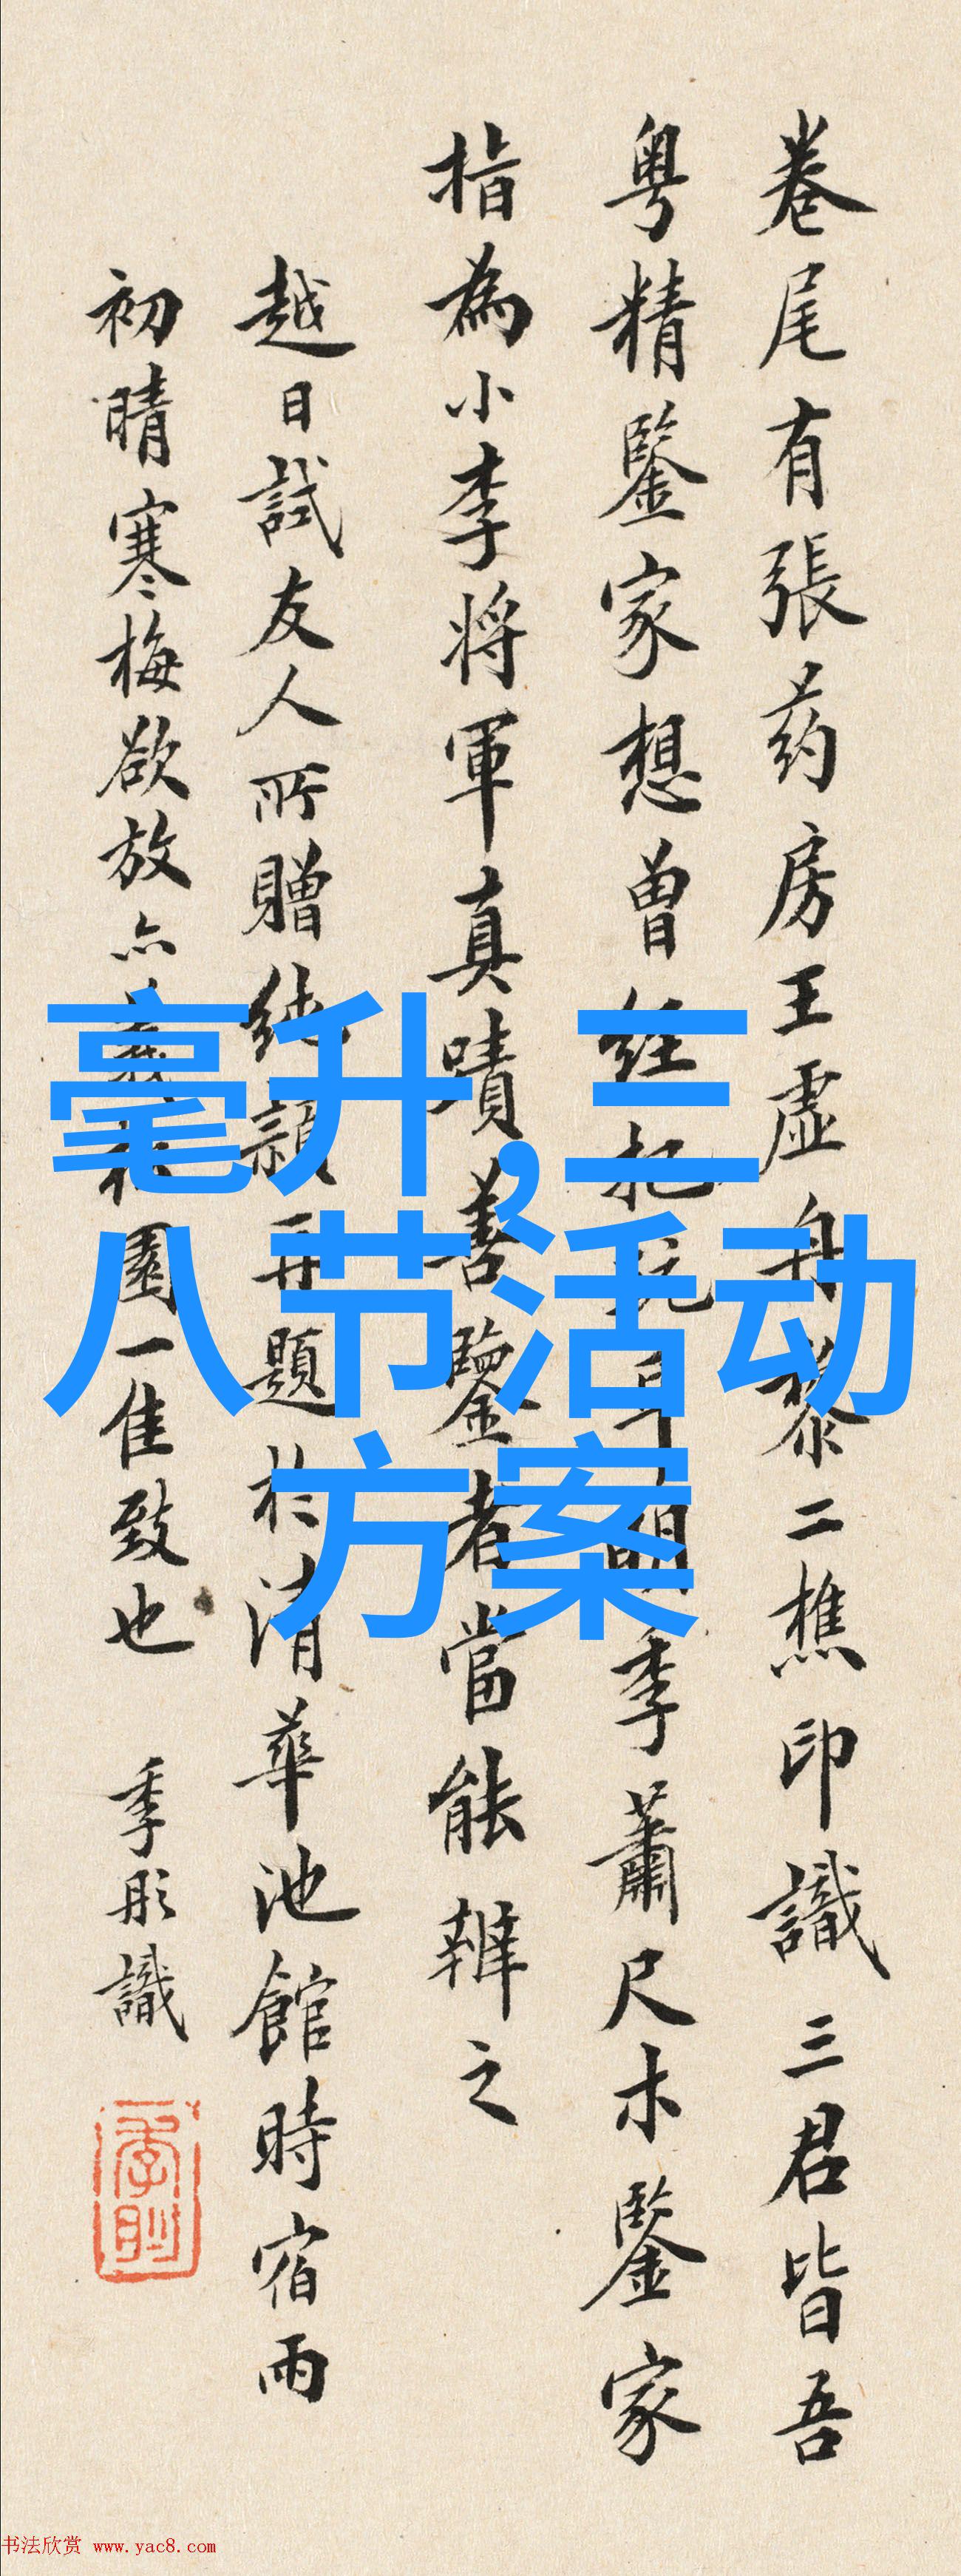 卷尾有張药房王虚舟黎二樵印識三君皆吾
粤精鑒家想曾經把玩早朗季蕭尺木鑒家
指為小李将軍真蹟善鑒者當能辨之
越日試友人所贈純穎再題於清華池館時宿雨
初晴寒梅欲放亦園一佳致也 季彤識
毫升,三
八节活动
方案
书法欣赏 www.yac8.com